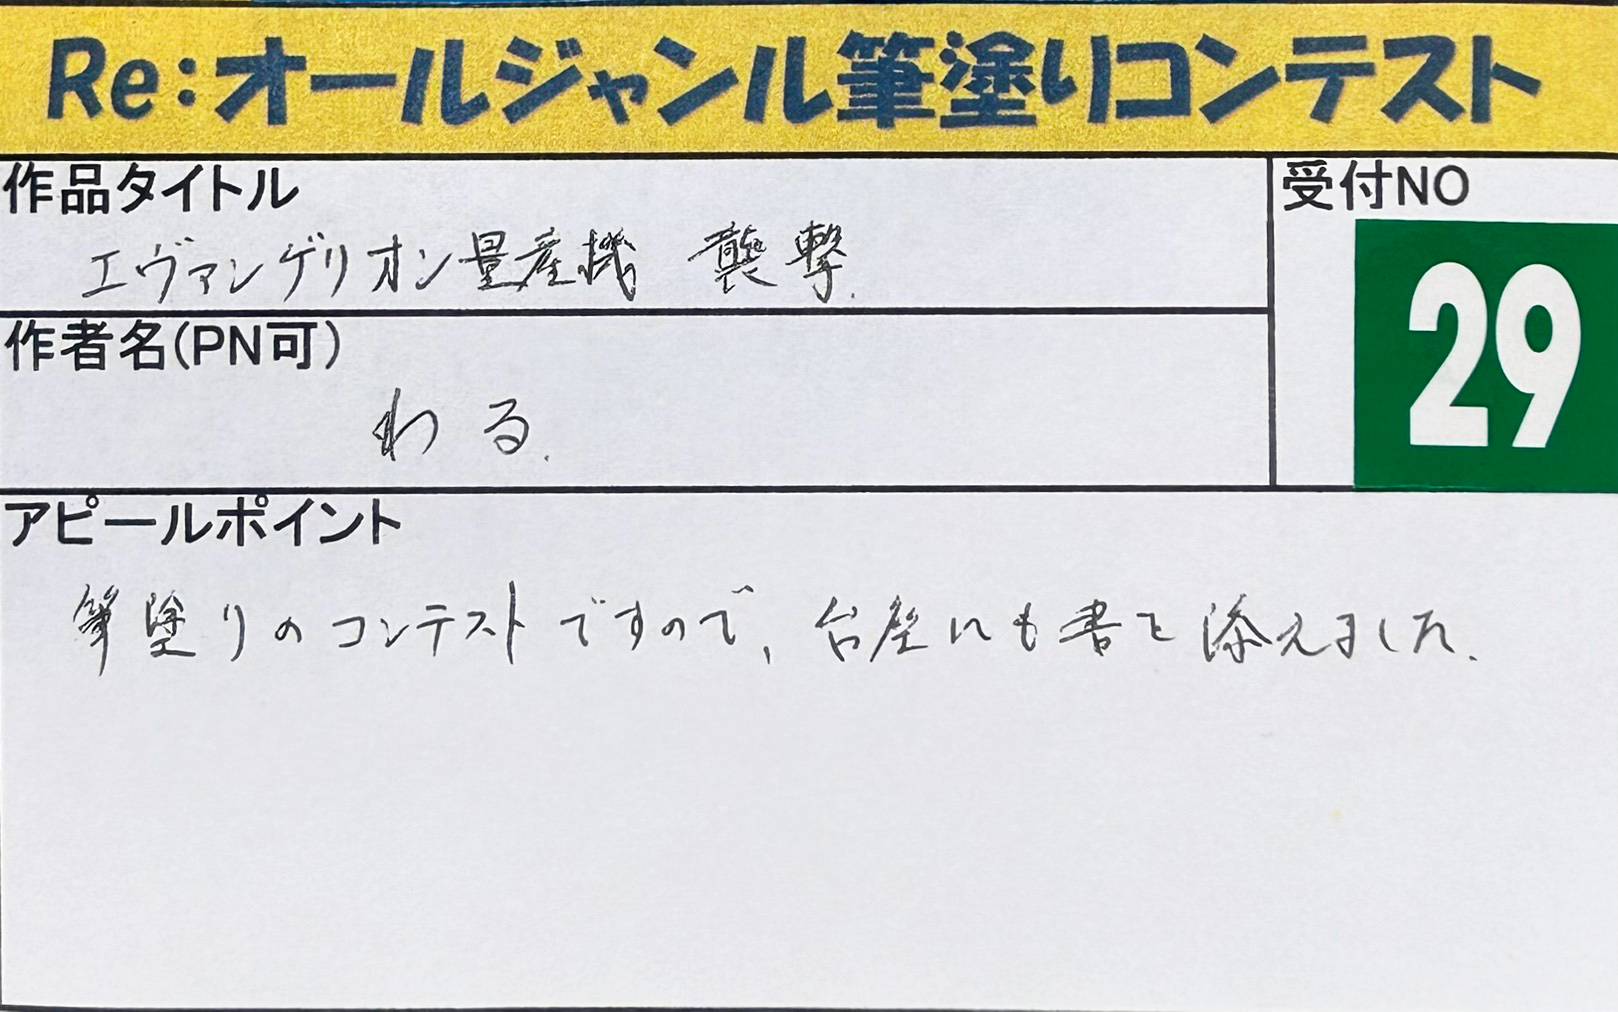 Re:オールジャンル筆塗りコンテスト
作品タイトル
エヴァンゲリオン量産機 襲撃.
受付NO
29
作者名(PN可)
わる.
アピールポイント
筆塗りのコンテストですので、台座にも書を添えました.